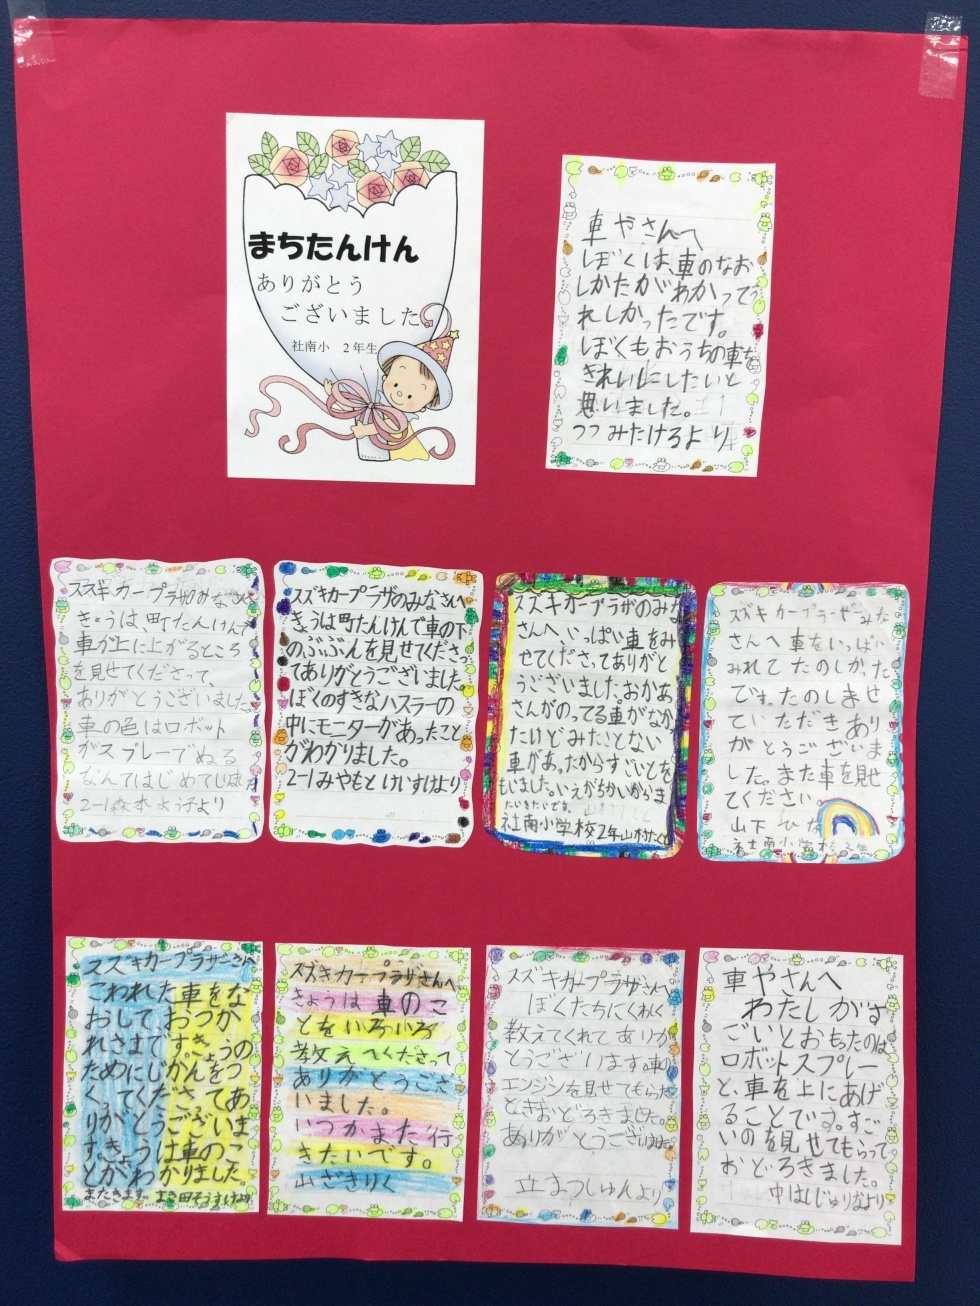 まちたんけん
ありがとう
ございました
社南小 2年生
車やさんへ
ぼくは、車のなお
しかたがわかってう
れしかったです。
ぼくもおうちの車を
きれいにしたいと
思いました。
つつみたけるより
スズキカープラザのみなさんへ
きょうは、町たんけんで
車が上に上がるところ
を見せてくださって、
ありがとうございました。
車の色はロボット
がスプレーでぬる
なんてはじめて
2-1森本ようすけより
スズキカープラザのみなさんへ
きょうは町たんけんで車の下
のぶぶんを見せてくださっ
てありがとうございました。
ぼくのすきなハスラーの
中にモニターがあったこと
がわかりました。
2-1みやもとけいすけより
スズキカープラザのみな
さんへ、いっぱい車をみ
せてくださってありがと
うございました。おかあ
さんがのってる車がなか
たけどみたことない
車があったからすごいとお
もいました。いえがちかいからま
たいきたいです。
社南小学校2年山村
スズキカープラザみな
さんへ 車をいっぱい
みれて たのしかった
です。たのしませ
ていただきあり
がとうございま
した。また車を見せ
てください。
山下 ひな
社南小学校2年
スズキカープラザさんへ
こわれた車をな
おして、おつか
れさまです。きょうの
ためにじかんをつ
くってくださってあ
りがとうございま
す。きょうは車のこ
とがわかりました。
またきます。まき田そうすけより
スズキカープラザさんへ
きょうは 車のこ
とをいろいろ
教えてくださって
ありがとうござ
いました。
いつかまた行
きたいです。
山ざきりく
スズキカープラザさんへ
ぼくたちにくわしく
教えてくれてありが
とうございます。車の
エンジンを見せてもらった
ときおどろきました。
ありがとうございました。
立まつしゅんより
車やさんへ
わたしがす
ごいとおもったのは
ロボットスプレー
と、車を上にあげ
ることです。すご
いのを見せてもらって
おどろきました。
中はしじゅりなより